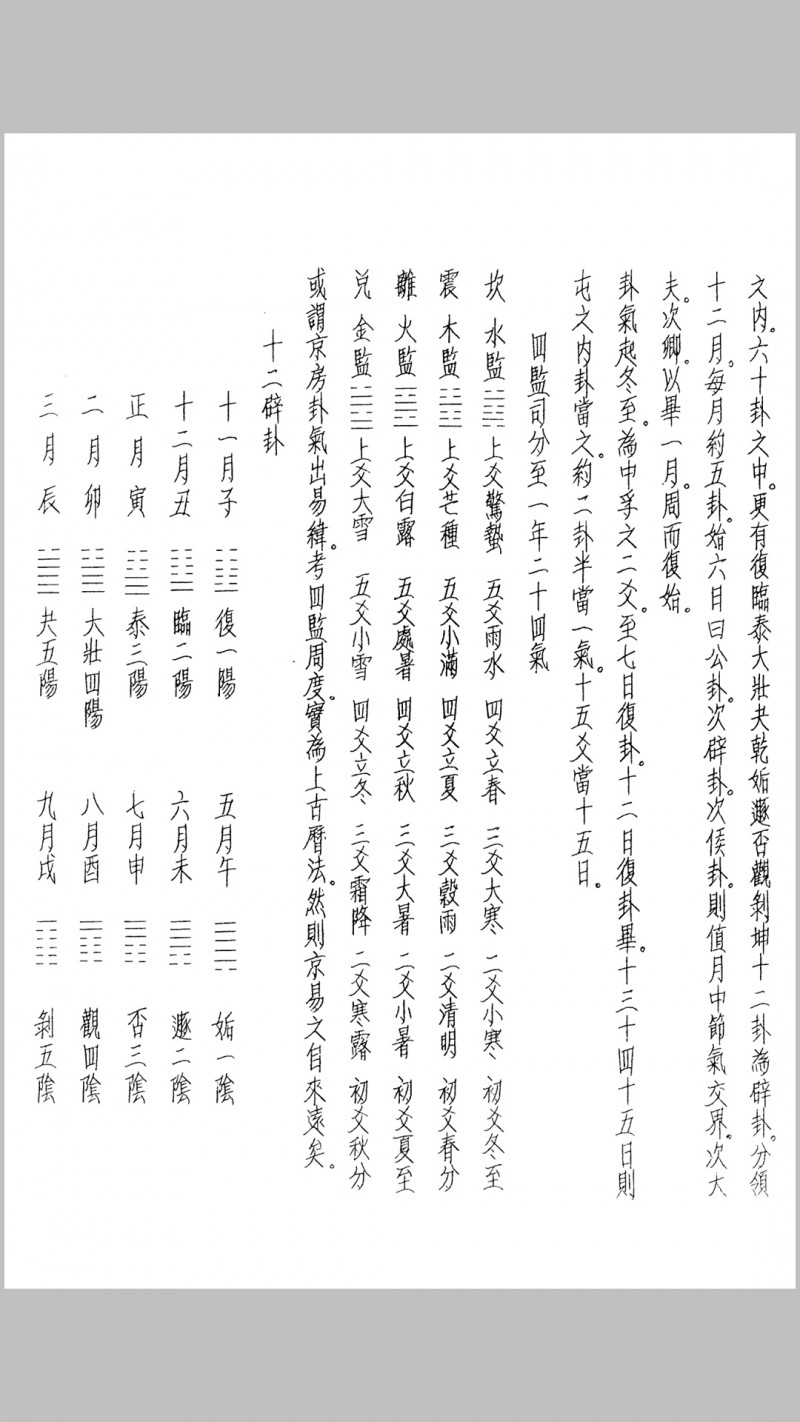 之內。六十卦之中。更有復臨泰大壯夬乾姤遯否觀剝坤十二卦為辟卦。分領
十二月。每月約五卦。始六日曰公卦。次辟卦。次侯卦。則值月中節氣交界。次大
夫。次卿。以畢一月。周而復始。
卦氣起冬至。為中孚之二爻。至七日復卦。十二日復卦畢。十三十四十五日則
屯之內卦當之。約二卦半當一氣。十五爻當十五日。
四監司分至一年二十四氣
坎 水監 ䷜ 上爻驚蟄 五爻雨水 四爻立春 三爻大寒 二爻小寒 初爻冬至
震 木監 ䷲ 上爻芒種 五爻小滿 四爻立夏 三爻穀雨 二爻清明 初爻春分
離 火監 ䷝ 上爻白露 五爻處暑 四爻立秋 三爻大暑 二爻小暑 初爻夏至
兌 金監 ䷹ 上爻大雪 五爻小雪 四爻立冬 三爻霜降 二爻寒露 初爻秋分
或謂京房卦氣出易緯。考四監周度。實為上古曆法。然則京易之自來遠矣。
十二辟卦
十一月子 ䷗ 復一陽 五月午 ䷫ 姤一陰
十二月丑 ䷒ 臨二陽 六月未 ䷠ 遯二陰
正月寅 ䷊ 泰三陽 七月申 ䷋ 否三陰
二月卯 ䷡ 大壯四陽 八月酉 ䷓ 觀四陰
三月辰 ䷪ 夬五陽 九月戌 ䷖ 剝五陰